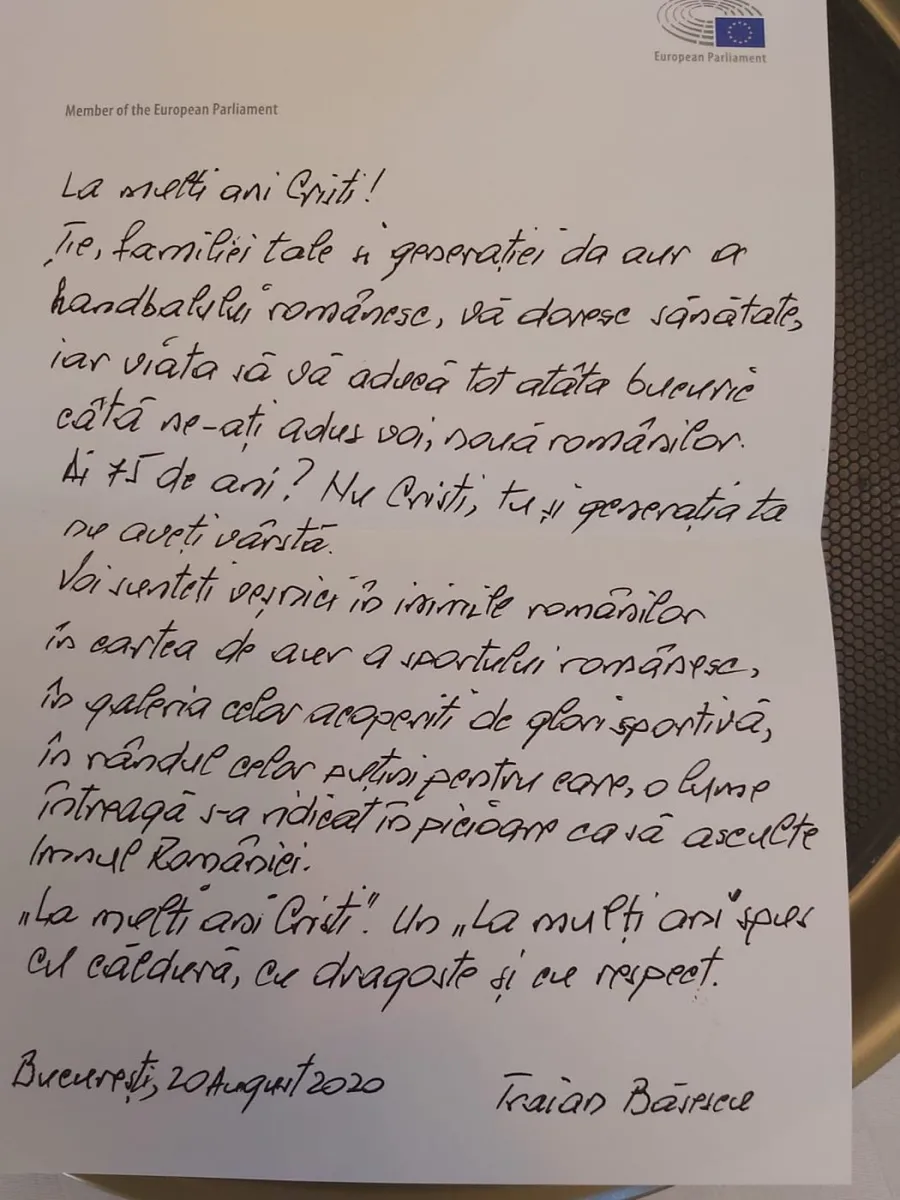 European Parliament
Member of the European Parliament
La multi ani Cristi!
Ție, familiei tale și generației da aur a
handbalului românesc, vă doresc sănătate,
iar viata să vă aducă tot atâta bucurie
câtă ne-ați adus voi, nouă românilor.
Ai 75 de ani? Nu Cristi, tu și generația ta
nu aveți vârstă.
Voi sunteti veșnici în inimile românilor
în cartea de aur a sportului românesc,
în galeria celor acoperiti de glori sportivă,
în rândul celor puțini pentru care, o lume
întreagă s-a ridicat în picioare ca să asculte
Imnul României.
„La multi ani Cristi". Un „La mulți ani" spus
cu căldură, cu dragoste și cu respect.
București, 20 August 2020
Traian Băsescu